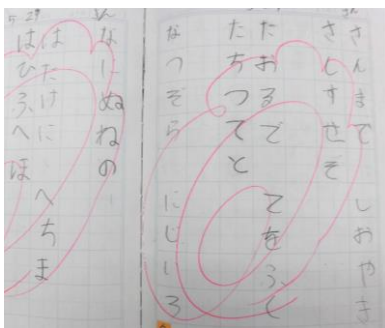 さんまで しおやき
さしすせそ
たおるで てをふく
たちつてと
なつぞら にじいろ
なにぬねの
5.29
はたけに へちま
はひふへほ